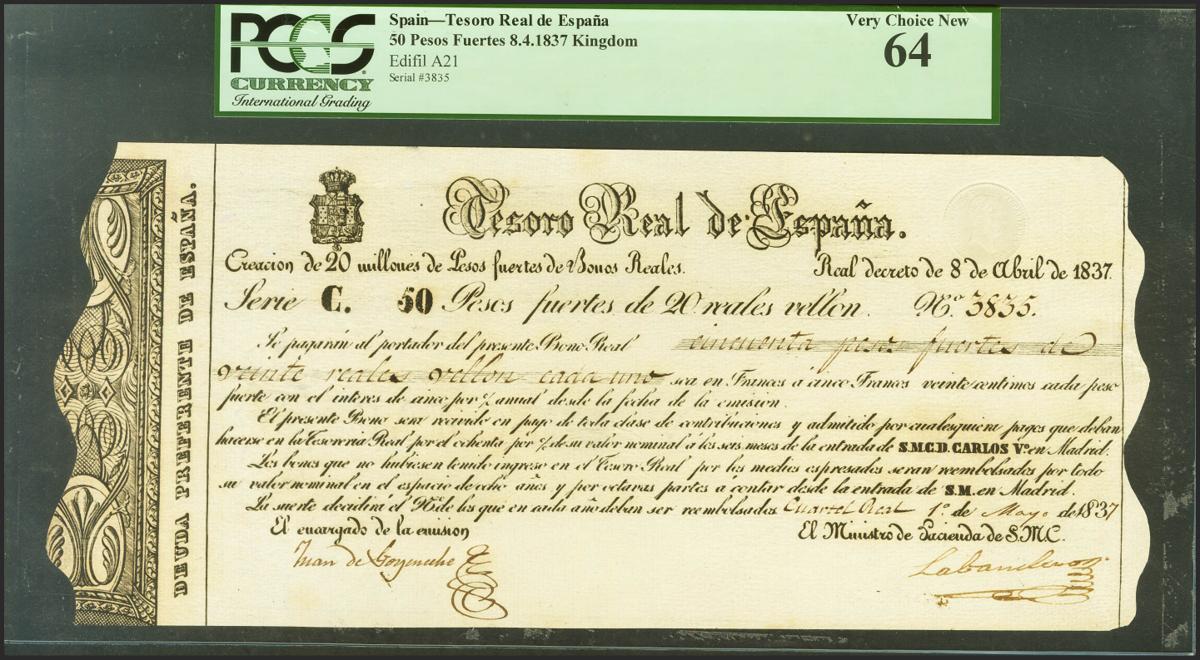 PCGS
CURRENCY
International Grading
Spain—Tesoro Real de España
50 Pesos Fuertes 8.4.1837 Kingdom
Edifil A21
Serial #3835
Very Choice New
64
DEUDA PREFERENTE DE ESPAÑA.
Tesoro Real de España.
Creacion de 20 millones de Pesos fuertes de Bonos Reales. Real decreto de 8 de Abril de 1837.
Serie C. 50 Pesos fuertes de 20 reales vellon. Nº 3835.
Se pagarán al portador del presente Bono Real cincuenta pesos fuertes de
veinte reales vellon cada uno sea en Frances á cinco Francos veinte centimos cada peso
fuerte con el interes de cinco por % anual desde la fecha de la emision.
El presente Bono sera recivido en pago de toda clase de contribuciones y admitido por cualesquiera pagos que deban
hacerse en la Tesoreria Real por el ochenta por % de su valor nominal á los seis meses de la entrada de S.M.C.D. CARLOS Vº en Madrid.
Los bonos que no hubiesen tenido ingreso en el Tesoro Real por los medios espresados seran reembolsados por todo
su valor nominal en el espacio de ocho años y por octavas partes á contar desde la entrada de S.M. en Madrid.
La suerte decidirá el Nº de los que en cada año deban ser reembolsados. Cuartel Real 1º de Mayo de 1837
El encargado de la emision El Ministro de Hacienda de S.M.C.
Juan de Goyeneche Labandero